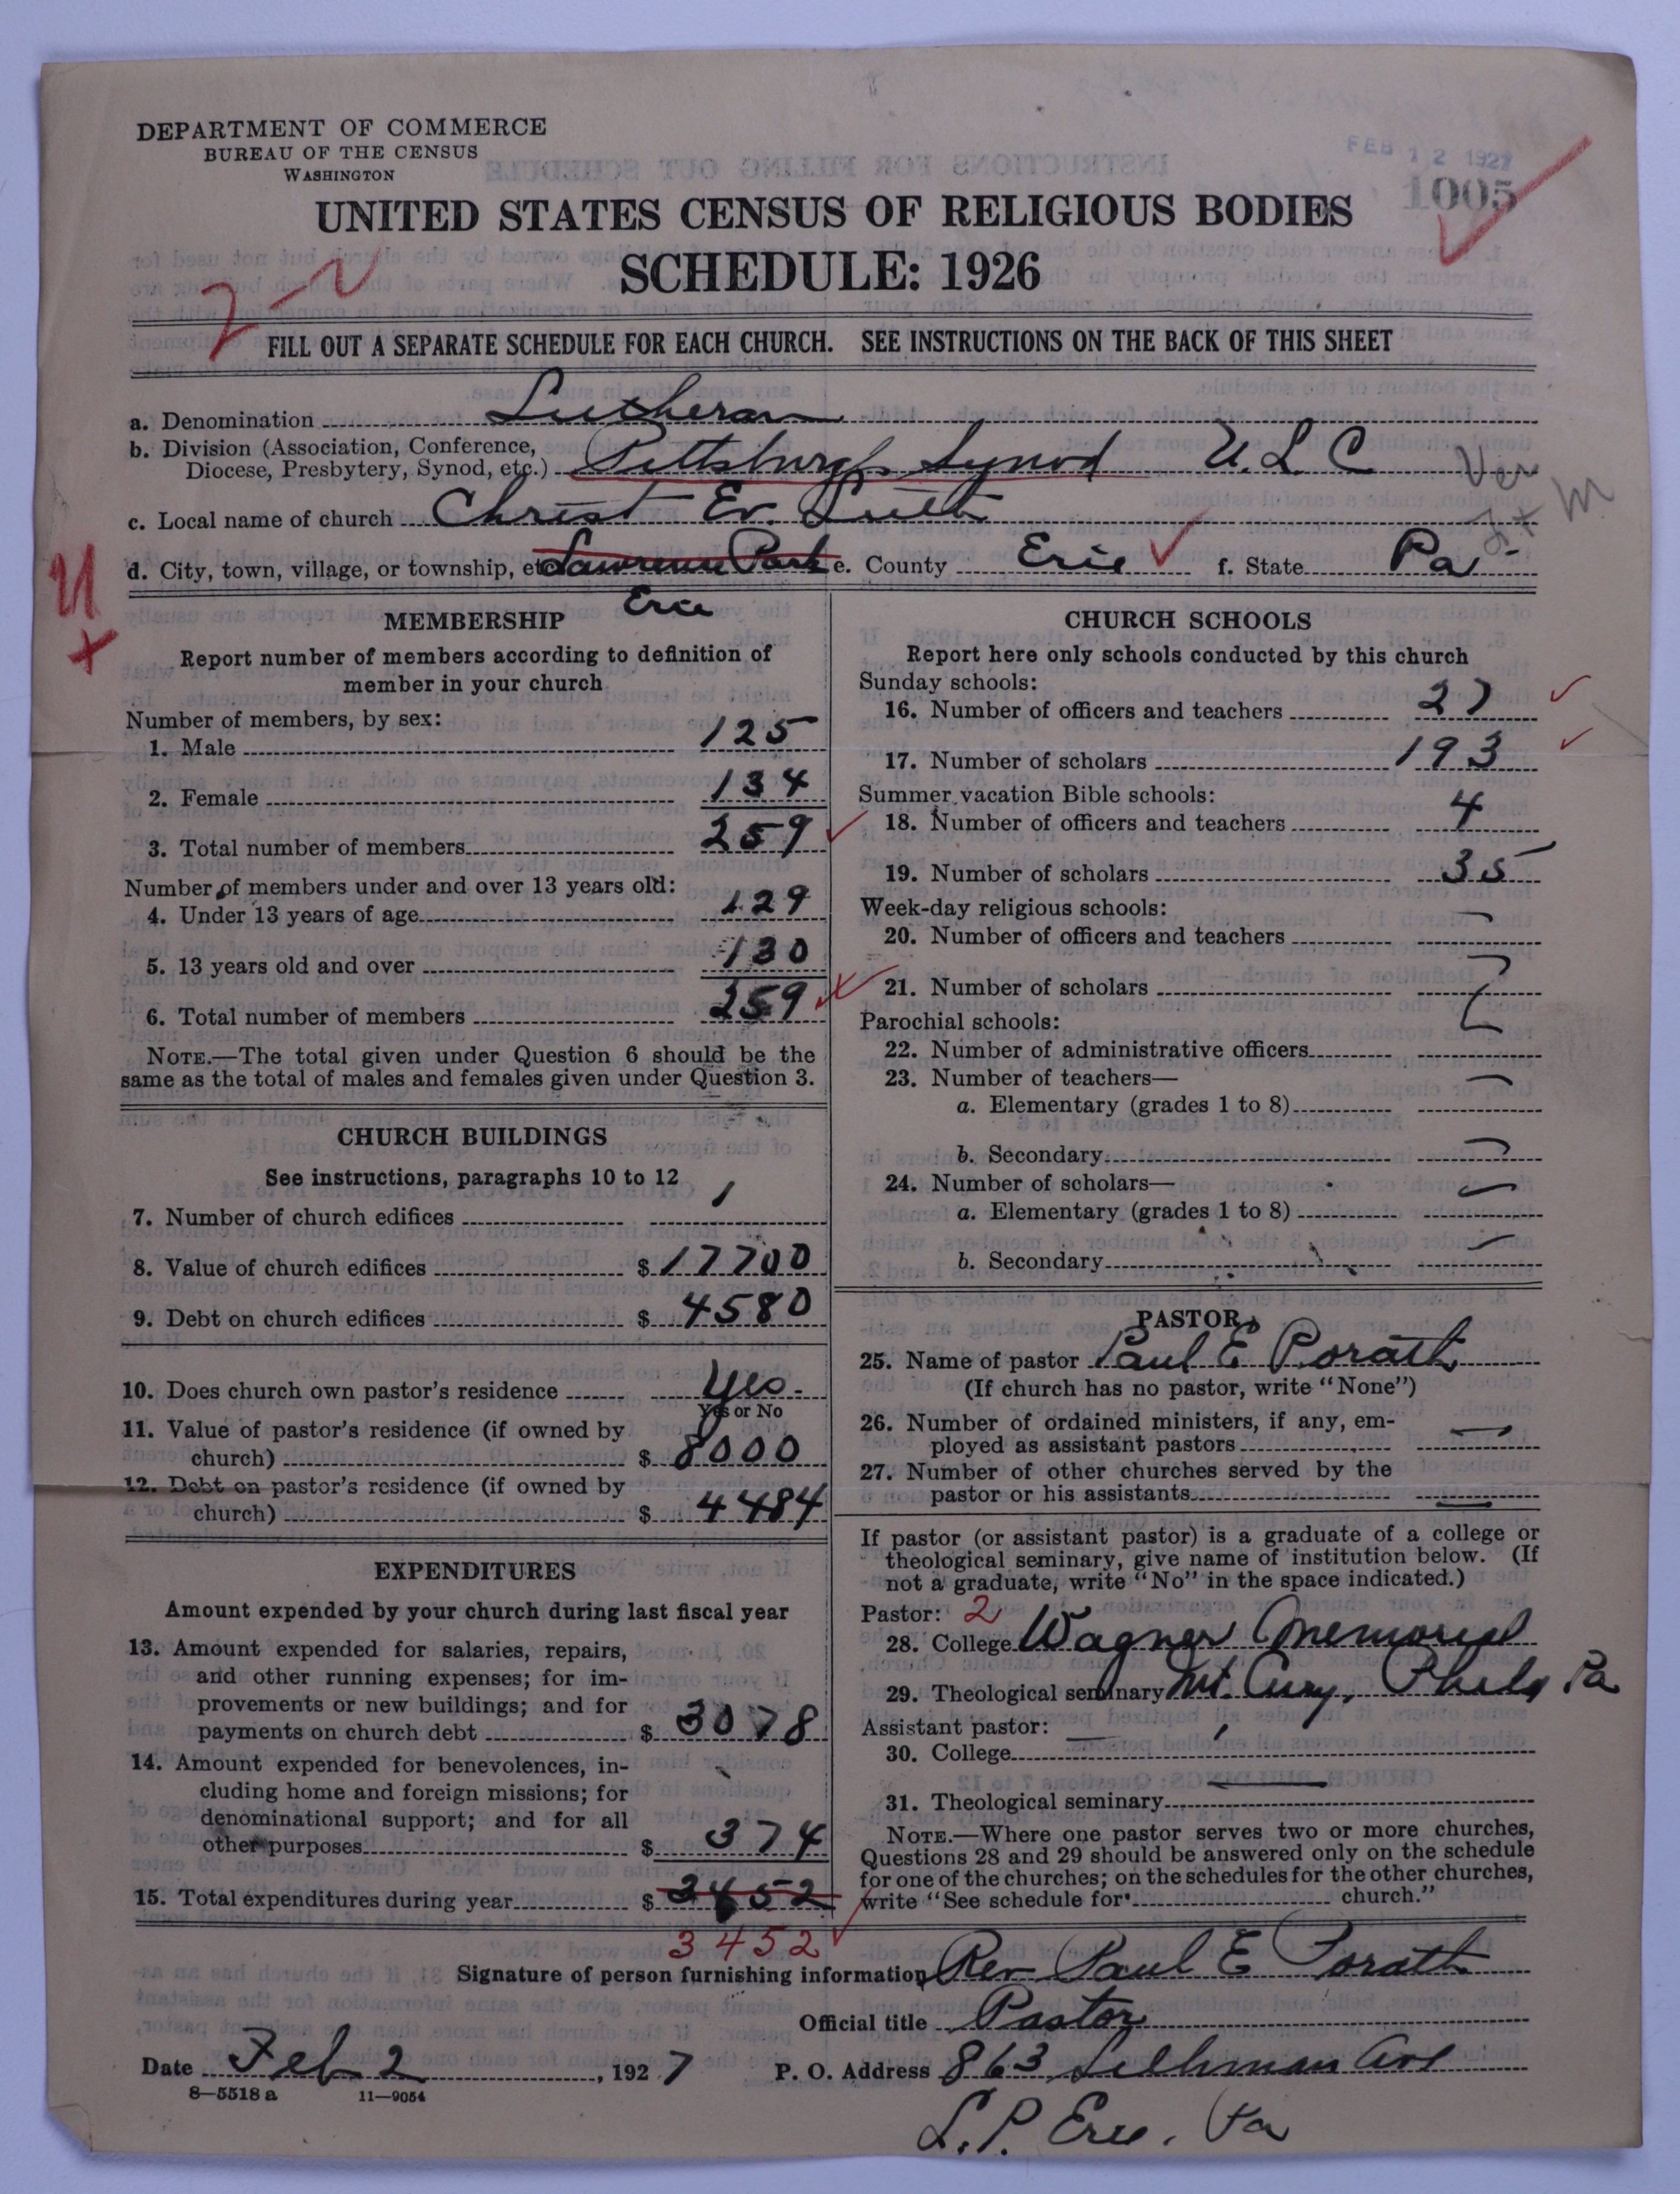 DEPARTMENT OF COMMERCE
BUREAU OF THE CENSUS
WASHINGTON
FEB 12 1927
1005
UNITED STATES CENSUS OF RELIGIOUS BODIES
SCHEDULE: 1926
2-
FILL OUT A SEPARATE SCHEDULE FOR EACH CHURCH. SEE INSTRUCTIONS ON THE BACK OF THIS SHEET
a. Denomination Lutheran
b. Division (Association, Conference,
Diocese, Presbytery, Synod, etc.) Pittsburgh Synod U. L. C
c. Local name of church Christ Ev. Luth
d. City, town, village, or township, etc. Lawrence Park e. County Erie f. State Pa
Erie
MEMBERSHIP
Report number of members according to definition of
member in your church
Number of members, by sex:
1. Male 125
2. Female 134
3. Total number of members 259
Number of members under and over 13 years old:
4. Under 13 years of age 129
5. 13 years old and over 130
6. Total number of members 259
NOTE.—The total given under Question 6 should be the
same as the total of males and females given under Question 3.
CHURCH BUILDINGS
See instructions, paragraphs 10 to 12
7. Number of church edifices 1
8. Value of church edifices $ 17700
9. Debt on church edifices $ 4580
10. Does church own pastor's residence Yes
Yes or No
11. Value of pastor's residence (if owned by
church) $ 8000
12. Debt on pastor's residence (if owned by
church) $ 4484
EXPENDITURES
Amount expended by your church during last fiscal year
13. Amount expended for salaries, repairs,
and other running expenses; for im-
provements or new buildings; and for
payments on church debt $ 3078
14. Amount expended for benevolences, in-
cluding home and foreign missions; for
denominational support; and for all
other purposes $ 374
15. Total expenditures during year $ 3452
3452
CHURCH SCHOOLS
Report here only schools conducted by this church
Sunday schools:
16. Number of officers and teachers 27
17. Number of scholars 193
Summer vacation Bible schools:
18. Number of officers and teachers 4
19. Number of scholars 35
Week-day religious schools:
20. Number of officers and teachers —
21. Number of scholars —
Parochial schools:
22. Number of administrative officers
23. Number of teachers—
a. Elementary (grades 1 to 8) —
b. Secondary —
24. Number of scholars—
a. Elementary (grades 1 to 8) —
b. Secondary —
PASTOR
25. Name of pastor Paul E Porath
(If church has no pastor, write "None")
26. Number of ordained ministers, if any, em-
ployed as assistant pastors —
27. Number of other churches served by the
pastor or his assistants —
If pastor (or assistant pastor) is a graduate of a college or
theological seminary, give name of institution below. (If
not a graduate, write "No" in the space indicated.)
Pastor: 2
28. College Wagner Memorial
29. Theological seminary Mt. Airy, Phila Pa
Assistant pastor: —
30. College
31. Theological seminary —
NOTE.—Where one pastor serves two or more churches,
Questions 28 and 29 should be answered only on the schedule
for one of the churches; on the schedules for the other churches,
write "See schedule for church."
Signature of person furnishing information Rev Paul E Porath
Official title Pastor
Date Feb 2, 1927 P. O. Address 863 Ave
8—5518 a 11—9054
L. P. Erie, Pa